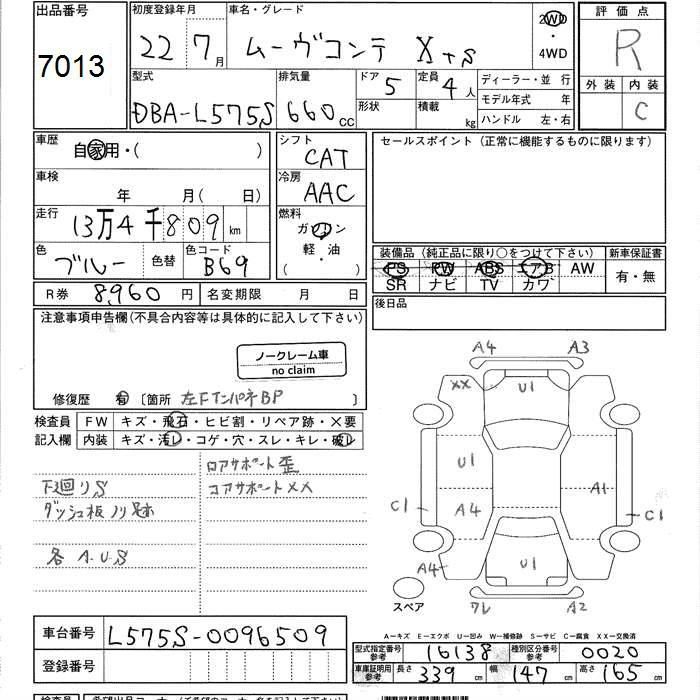 出品番号 7013
初度登録年月 22 7月
車名・グレード ムーヴコンテ X+S
2WD ・ 4WD
評価点 R
外装 内装 C
型式 DBA-L575S
排気量 660 cc
ドア 5
形状
定員 4 人
積載 kg
ディーラー・並 行
モデル年式 年
ハンドル 左・右
車歴 自家用・( )
シフト CAT
セールスポイント(正常に機能するものに限ります)
車検 年 月(日)
冷房 AAC
走行 13万4千809km
燃料 ガソリン
軽・油
( ・ )
色 ブルー 色替
色コード B69
装備品(純正品に限り○をつけて下さい)
PS PW ABS エアB AW
SR ナビ TV カワ
新車保証書
有・無
R券 8,960 円
名変期限 月 日
後日品
注意事項申告欄(不具合内容等は具体的に記入して下さい)
ノークレーム車
no claim
修復歴 有 〔箇所 左FインパネBP 〕
検査員 FW キズ・飛石・ヒビ割・リペア跡・X要
記入欄 内装 キズ・汚レ・コゲ・穴・スレ・キレ・破レ
ロアサポート歪
下廻りS コアサポートXX
ダッシュ板ノリ跡
各 A.U.S
A4 A3
XX U1
U1
A4 A1
C1 C1
A4 U1
スペア ワレ A2
車台番号 L575S-0096509
登録番号
A-キズ E-エクボ U-凹み W-補修跡 S-サビ C-腐食 XX-交換済
型式指定番号 参考 16138
種別区分番号 参考 0020
車庫証明用 参考 長さ 339 cm 幅 147 cm 高さ 165 cm